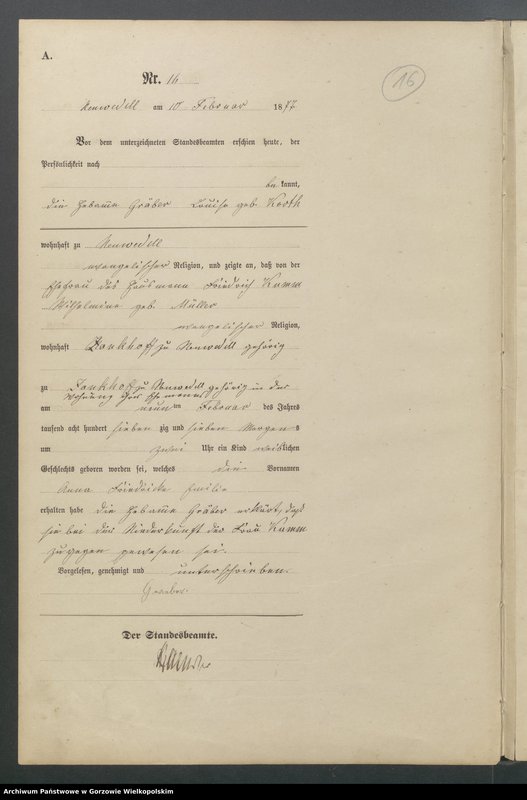 A.
Nr. 16
16
Neuwedell am 10 Februar 1877
Vor dem unterzeichneten Standesbeamten erschien heute, der
Persönlichkeit nach
be kannt,
die Hebamme Gräber Louise geb. Korth
wohnhaft zu Neuwedell
evangelischer Religion, und zeigte an, daß von der
Ehefrau des Friedrich Kamm
Wilhelmine geb. Müller
evangelischer Religion,
wohnhaft Zankhof zu Neuwedell gehörig
zu Zankhof zu Neuwedell gehörig in der
Wohnung Ehemannes
am neun ten Februar des Jahres
tausend acht hundert sieben zig und sieben Morgens
um zwei Uhr ein Kind weiblichen
Geschlechts geboren worden sei, welches den Vornamen
Anna Friedricke Emilie
erhalten habe die Hebamme Gräber erklärt, daß
sie bei der Niederkunft der Frau Kamm
zugegen gewesen sei.
Vorgelesen, genehmigt und unterschrieben.
Der Standesbeamte.
Archiwum Państwowe w Gorzowie Wielkopolskim